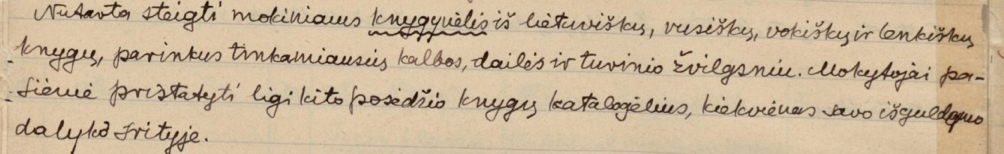 Nutarta steigti mokiniams knygynėlis iš lietuviškų, rusiškų, vokiškų ir lenkiškų
knygų, parinkus tinkamiausių kalbos, dailės ir turinio žvilgsniu. Mokytojai pa-
siėmė pristatyti ligi kito posėdžio knygų katalogėlius, kiekvienas savo išguldomo
dalyko srityje.